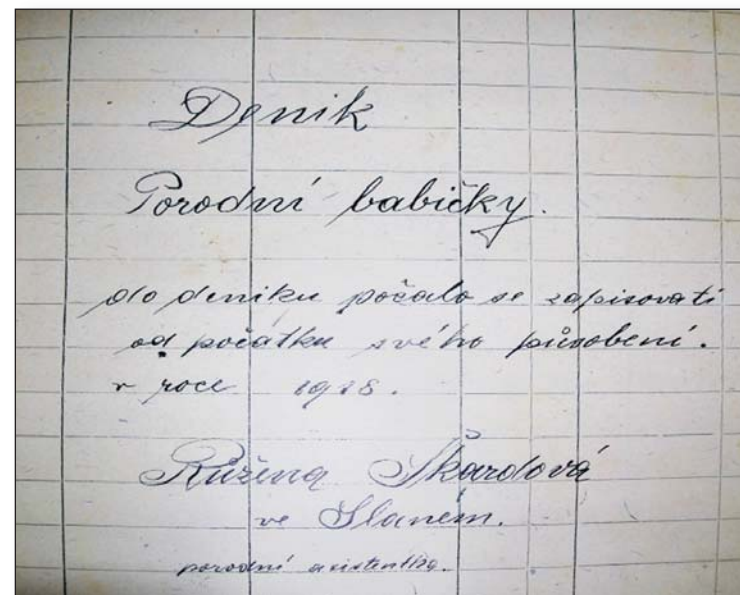 Denik
Porodní babičky.
do deniku počalo se zapisovati
od počátku svého působení.
v roce 1918.
Růžena Škardová
ve Slaném.
porodní asistentka.